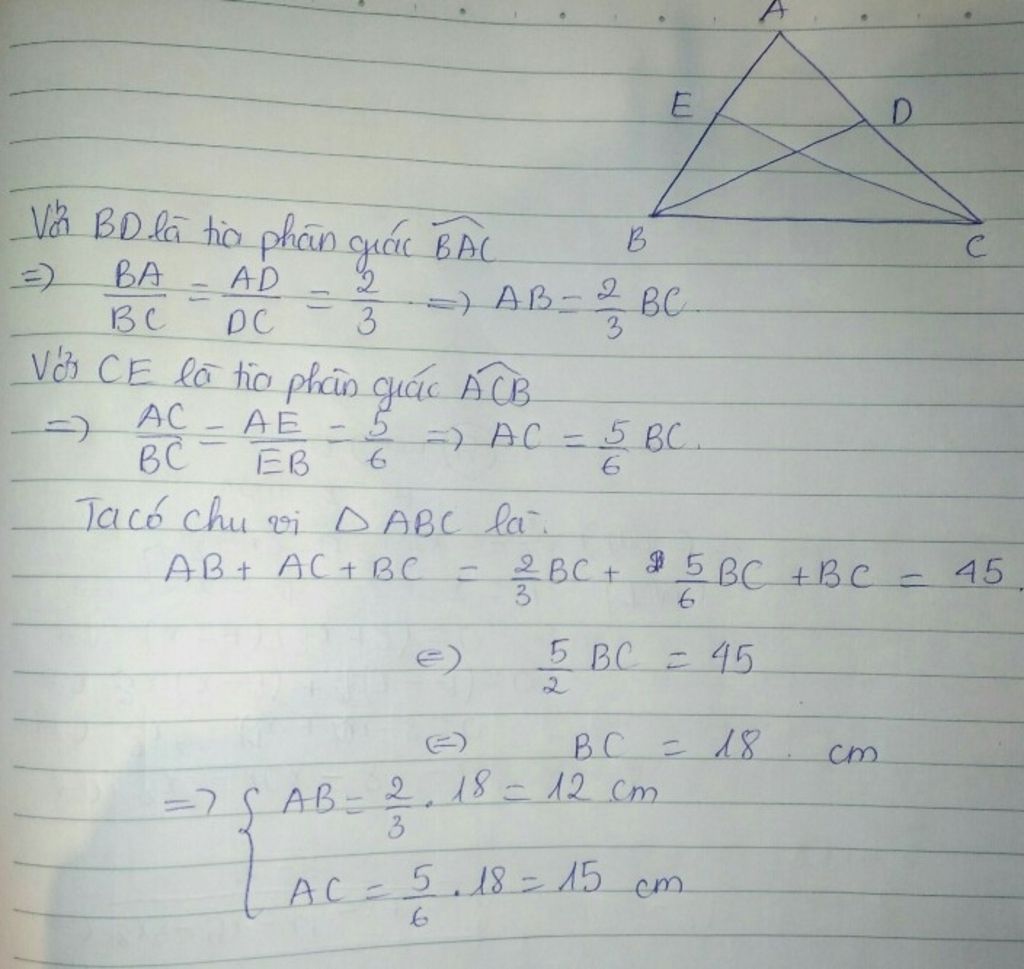 A
E D
B C
Với BD là tia phân giác \widehat{BAC}
=> \frac{BA}{BC} = \frac{AD}{DC} = \frac{2}{3} => AB = \frac{2}{3} BC.
Với CE là tia phân giác \widehat{ACB}
=> \frac{AC}{BC} = \frac{AE}{EB} = \frac{5}{6} => AC = \frac{5}{6} BC.
Ta có chu vi Δ ABC là:
AB + AC + BC = \frac{2}{3} BC + \frac{5}{6} BC + BC = 45.
<=> \frac{5}{2} BC = 45
<=> BC = 18. cm
=> { AB = \frac{2}{3} . 18 = 12 cm
AC = \frac{5}{6} . 18 = 15 cm